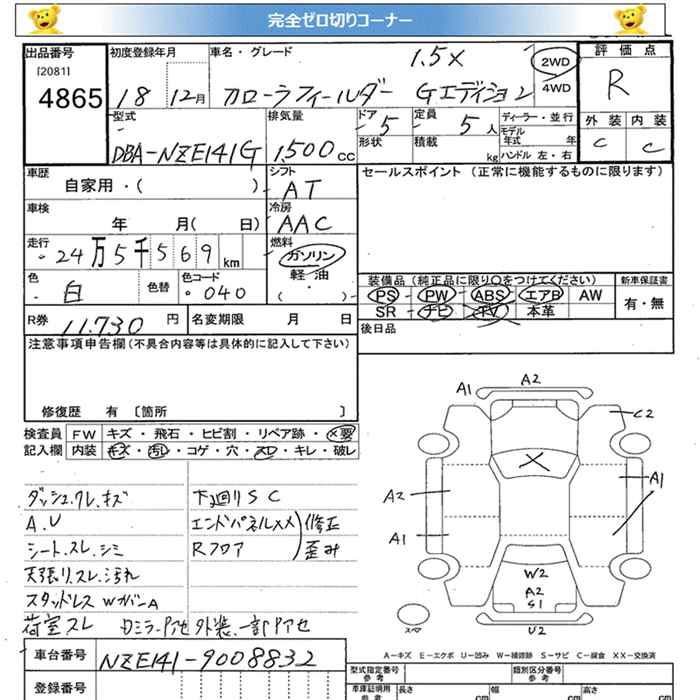 完全ゼロ切りコーナー
出品番号
[2081]
4865
初度登録年月
18 12月
車名・グレード
1.5X
カローラフィールダー Gエディション
2WD
4WD
評価点
R
外装 内装
C C
型式
DBA-NZE141G
排気量
1,500 cc
ドア
5
形状
定員
5 人
積載
kg
ディーラー・並行
モデル年式 年
ハンドル 左・右
車歴
自家用・( )
シフト
AT
セールスポイント (正常に機能するものに限ります)
車検
年 月( 日)
冷房
AAC
走行
24万5千569 km
燃料
ガソリン
軽油
( ・ )
色
白
色替
色コード
040
装備品 (純正品に限り○をつけてください)
PS PW ABS エアB AW
SR ナビ TV 本革
新車保証書
有・無
R券
11,730 円
名変期限 月 日
後日品
注意事項申告欄 (不具合内容等は具体的に記入して下さい)
修復歴 有 [箇所 ]
検査員 FW キズ・飛石・ヒビ割・リペア跡・×要
記入欄 内装 キズ・汚レ・コゲ・穴・スレ・キレ・破レ
ダッシュ.クレ.キズ
A.V
シート.スレ.シミ
天張リ.スレ.汚れ
スタッドレス WカバーA
荷室スレ
下廻りSC
エンドパネルメメ 修正
Rフロア 歪み
ロミラーPアセ 外装、一部Pアセ
A1 A2
C2
A2
A1
A1
W2
A2
S1
U2
スマ
A－キズ E－エクボ U－凹み W－補修跡 S－サビ C－腐食 XX－交換済
車台番号
NZE141-9008832
登録番号
型式指定番号
参考
類別区分番号
参考
車庫証明用
参考
長さ cm
幅 cm
高さ cm